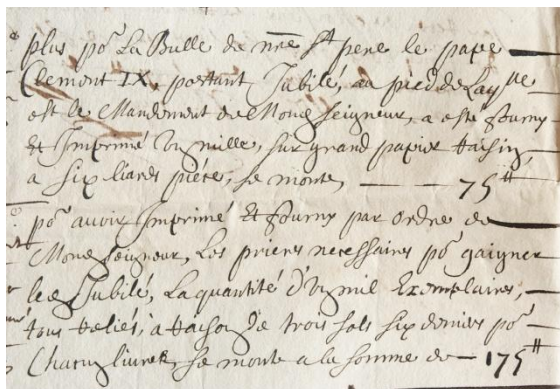 plus po.r La Bulle de n.re s.t pere le pape
Clement IX, portant Jubilé, au pied de Laq.lle
est le Mandement de Monseigneur, a esté fourny
et Imprimé Un mille, sur grand papier Raisin,
a six liards piéce, se monte 75.tt
po.r avoir Imprimé et fourny par ordre de
Monseigneur, Les prieres necessaires po.r gaigner
led. Jubilé, La quantité d'Un mil Exemplaires,
tous Reliés, à Raison de trois sols six deniers po.r
Chacun livret, se monte a la somme de 175.tt